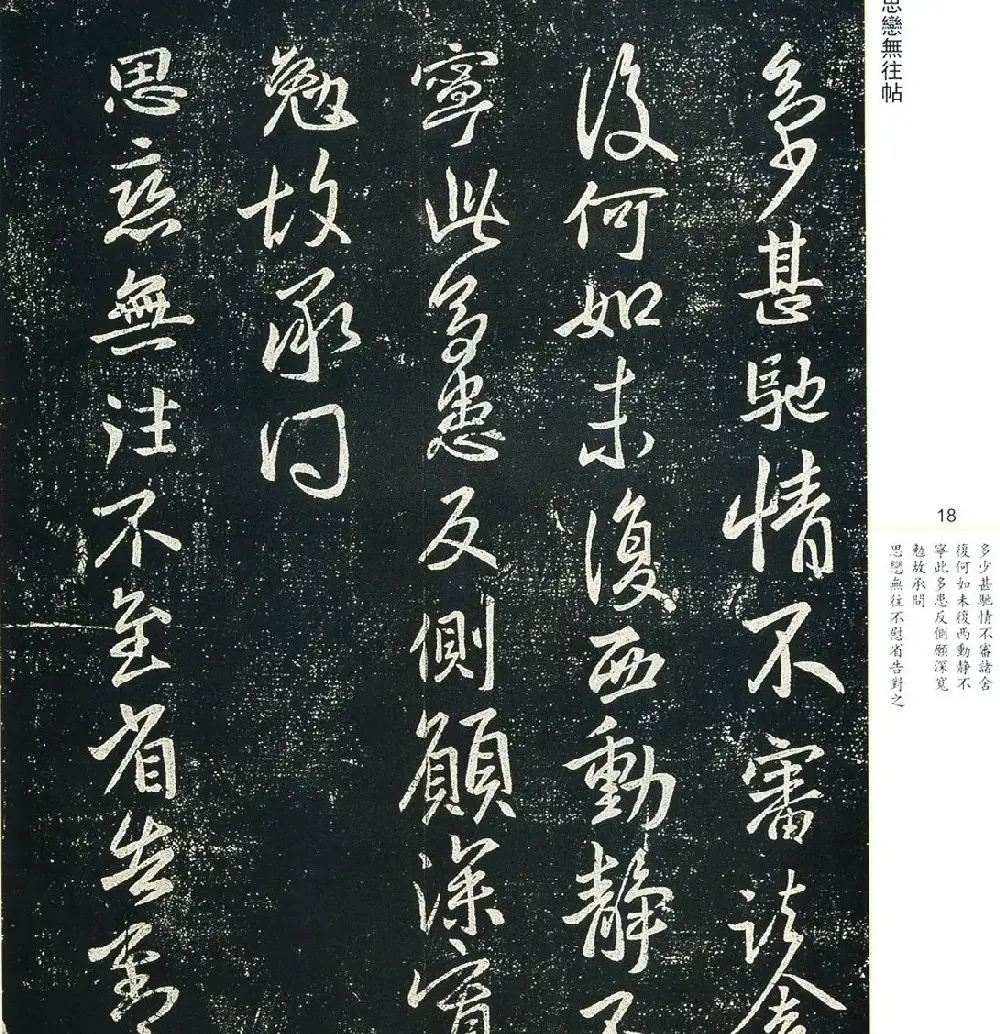 多少甚馳情不審諸舍
復何如未復西動靜不
寧此多患反側願深寬
勉故承問
思戀無往不至省告對
思戀無往帖
18
多少甚馳情不審諸舍
復何如未復西動靜不
寧此多患反側願深寬
勉故承問
思戀無往不慰省告對之